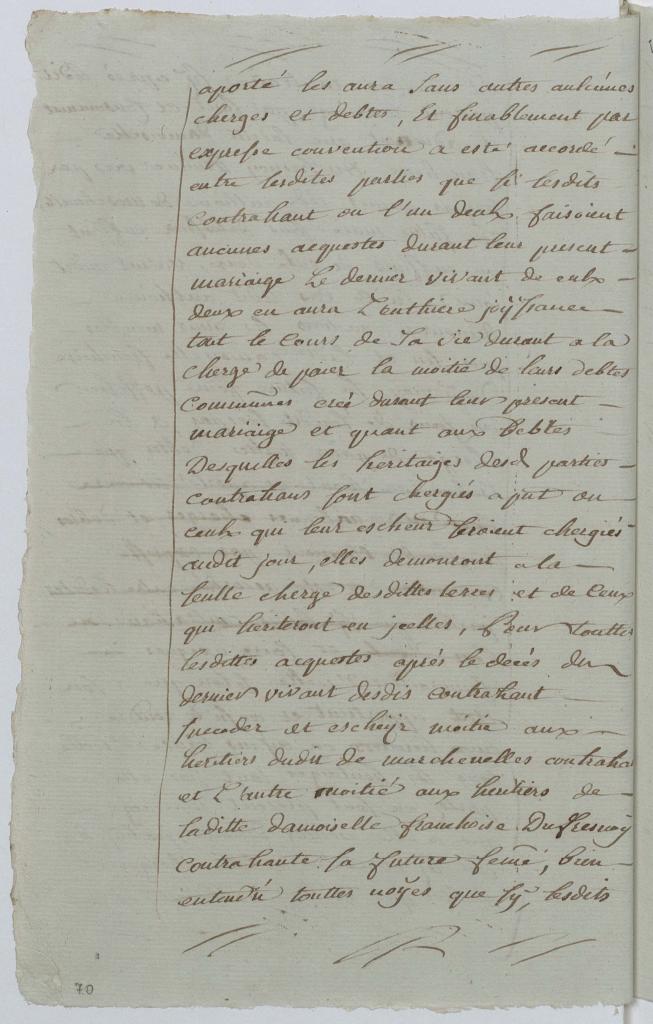 aporté les aura sans autres aulcunes
cherges et debtes, Et finablement par
expresse convention a esté accordé —
entre lesdites parties que si lesdits
contrahant ou l'un deulx faisoient
aucunes acquestes durant leur present —
mariaige Le dernier vivant de eulx —
deux en aura L'enthiere joÿssance —
tout le cours de sa vie durant a la
cherge de paier la moitié de leurs debtes
communes creé durant leur present —
mariaige et quant aux Debtes
Desquelles les heritaiges desd parties —
contrahans sont chergiés a jut ou
ceulx qui leur escheur seroient chergiés
audit jour, elles demouront a la —
seulle cherge desdittes terres et de Ceux
qui heriteront en jcelles, Pour touttes
lesdittes acquestes aprés le decés du
dernier vivant desdis contrahant —
succeder et escheÿr moitié aux —
heritiers dudit de marchenelles contraha
et L'autre moitié aux heritiers de —
laditte damoiselle franchoise Dufresnoÿ
contrahante sa future femē, bien —
entendu touttes voÿes que sÿ, lesdits
70